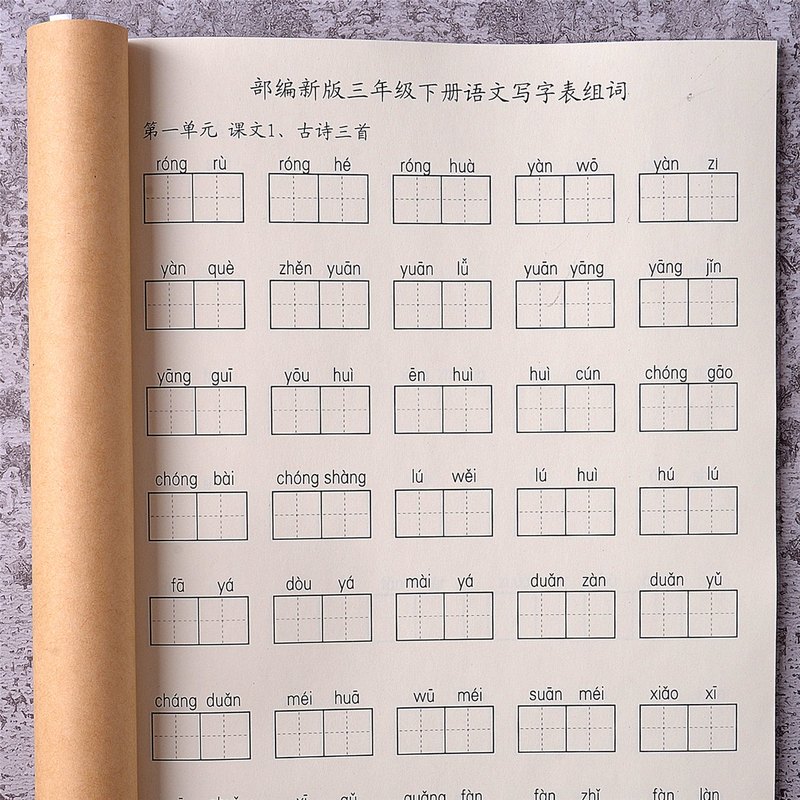 部编新版三年级下册语文写字表组词
第一单元 课文1、古诗三首
róng rù róng hé róng huà yàn wō yàn zi
yàn què zhěn yuān yuān lǚ yuān yāng yāng jǐn
yāng guī yōu huì ēn huì huì cún chóng gāo
chóng bài chóng shàng lú wěi lú huì hú lú
fā yá dòu yá mài yá duǎn zàn duǎn yǔ
cháng duǎn méi huā wū méi suān méi xiǎo xī
guǎng fàn fàn zhǐ fàn làn